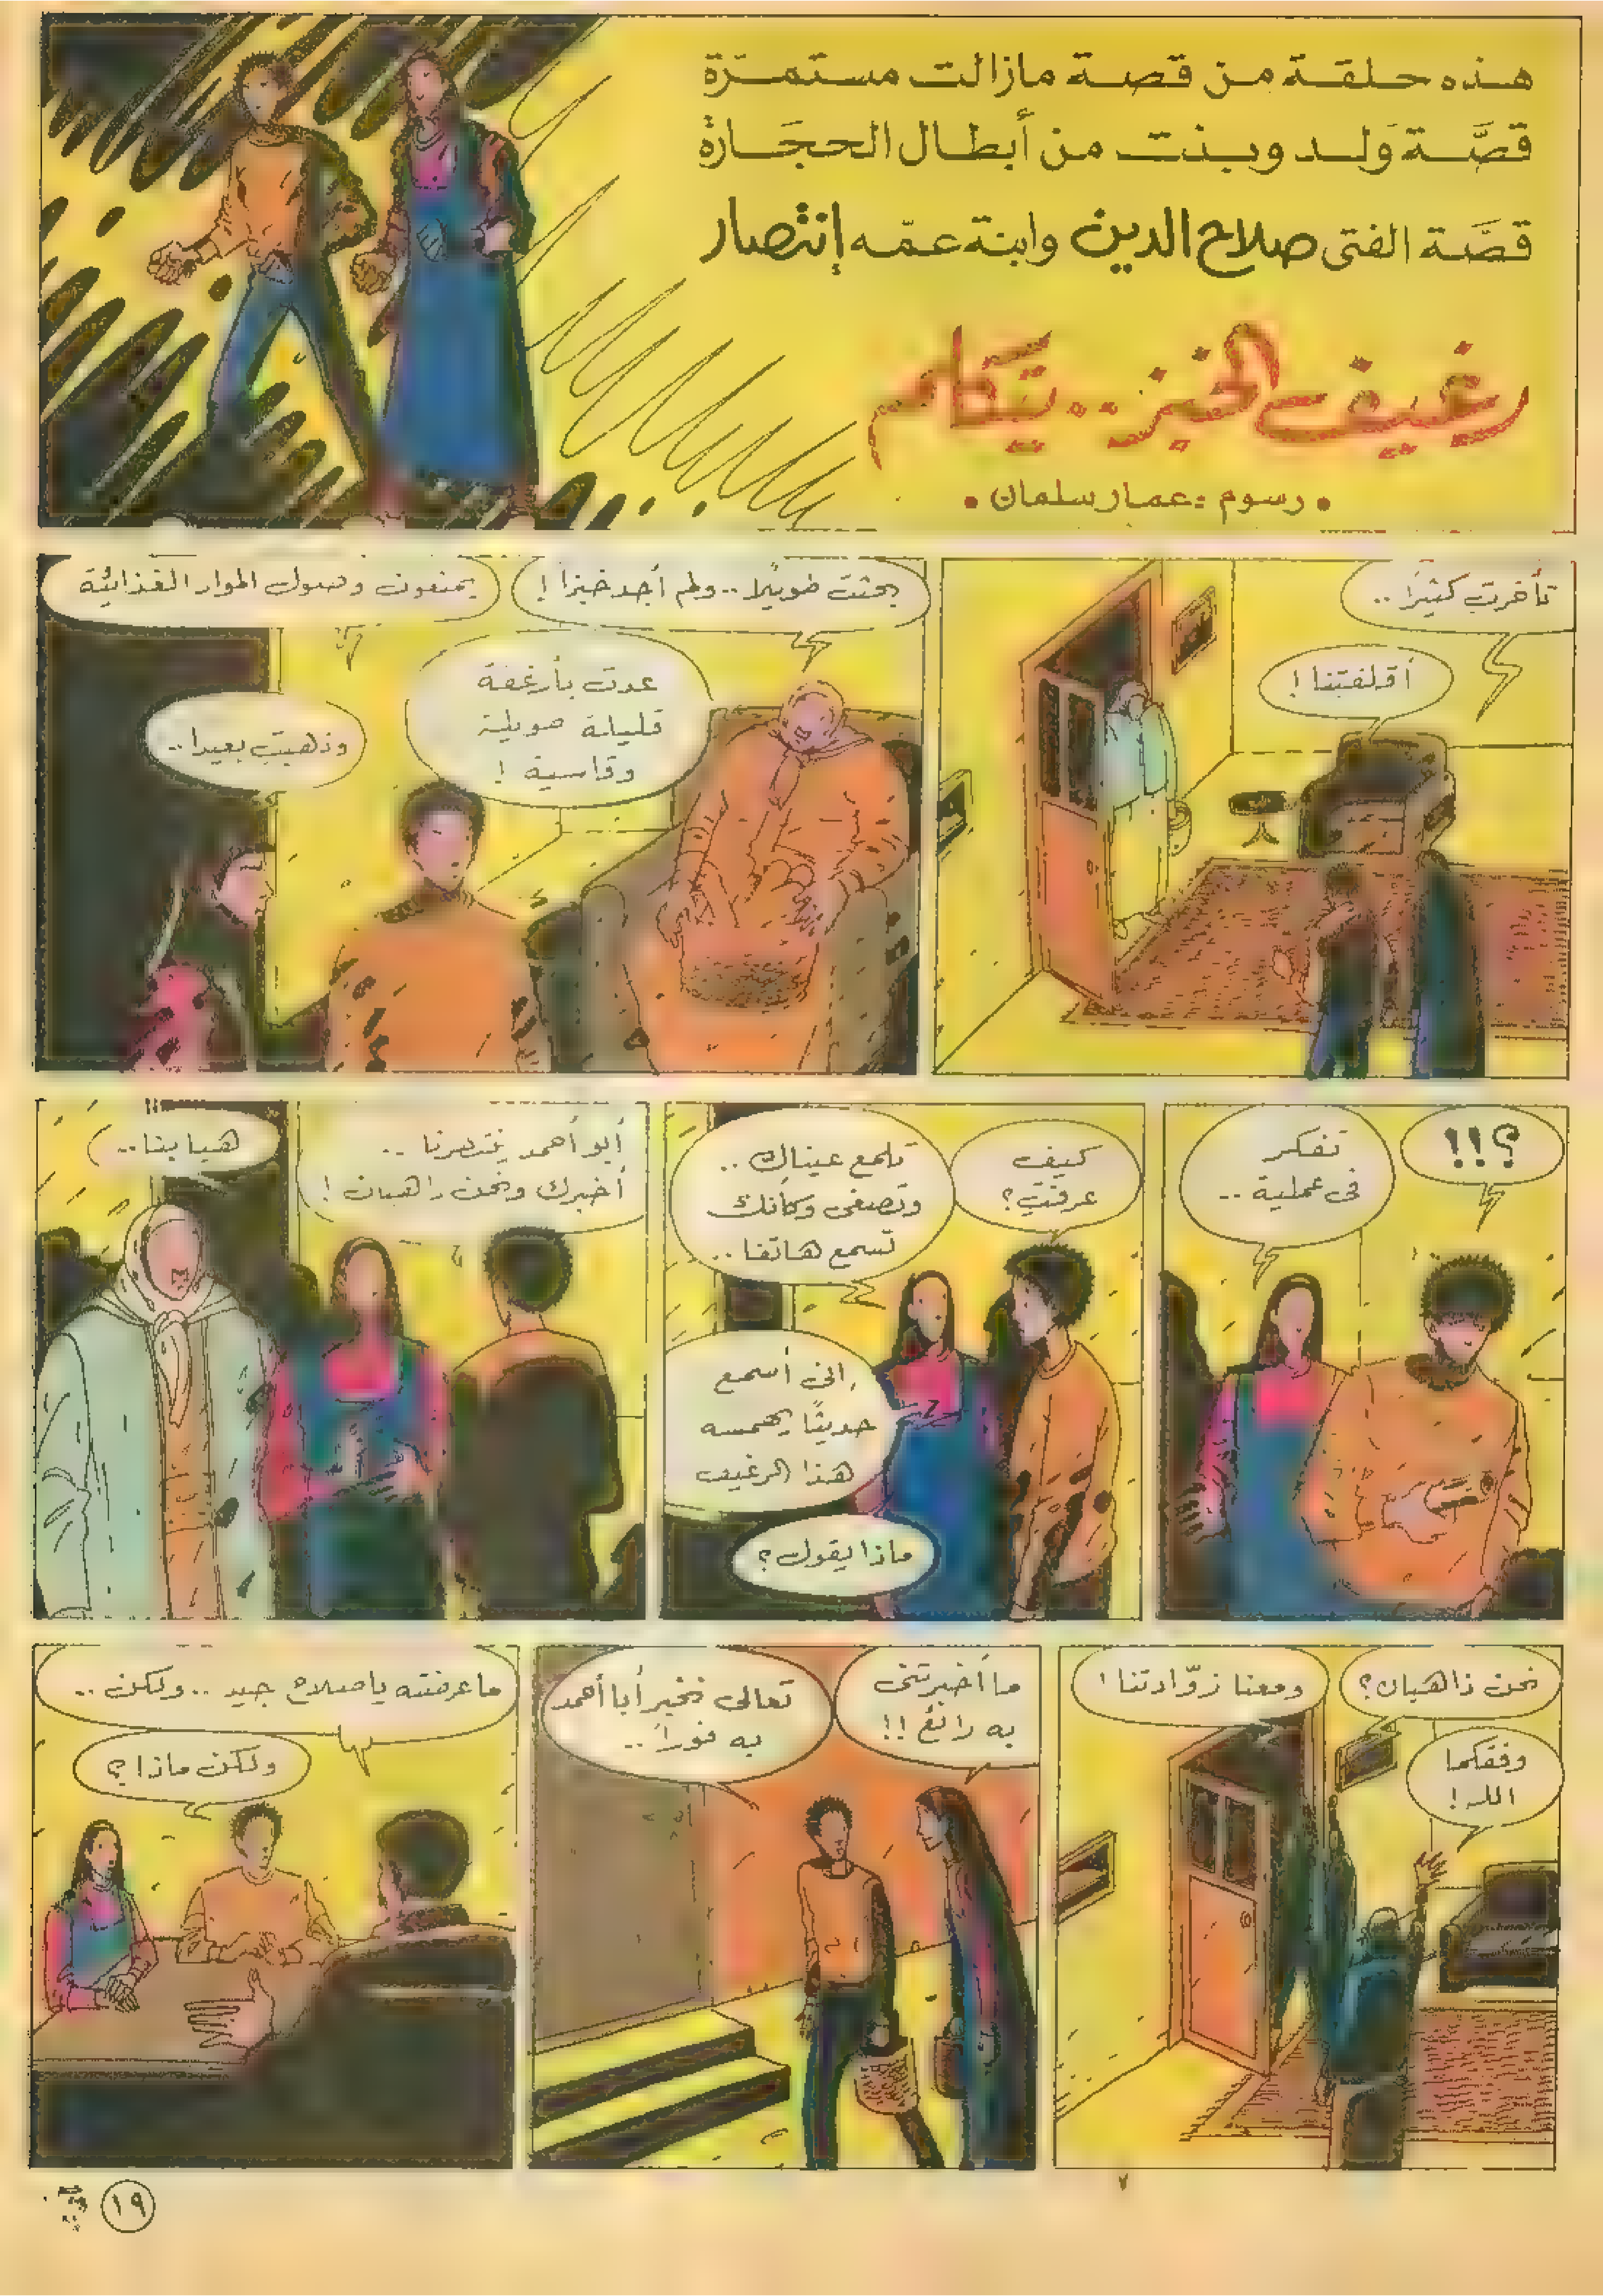 هذه حلقة من قصة مازالت مستمرّة
قصَّة وَلد وبنت من أبطال الحجَارة
قصَّة الفتى صلاح الدين وابنة عمّه إنتصار
رغيف الخبز.. يتَكلم
• رسوم : عمار سلمان •
تأخرت كثيرًا ..
أقلقتنا !
بحثت طويلًا.. ولم أجد خبزا !
يمنعون وصول المواد الغذائية
عدت بأرغفة
قليلة
وقاسية !
وذهبت بعيدا..
؟!!
تفكر
فى عملية ..
كيف
عرفتِ؟
تلمع عيناك ..
وتصغى وكأنك
تسمع هاتفا ..
إنى أسمع
حديثًا يهمسه
هذا الرغيف
ماذا يقول ؟
أبو أحمد ينتظرنا ..
أخبرك ونحن ذاهبان !
هيا بنا ..
نحن ذاهبان ؟
ومعنا زوّادتنا !
وفقكما
الله !
ما أخبرتنى
به رائع !!
تعالى نخبر أبا أحمد
به فورًا ..
ما عرفته يا صلاح جيد .. ولكن ..
ولكن ماذا ؟
١٩